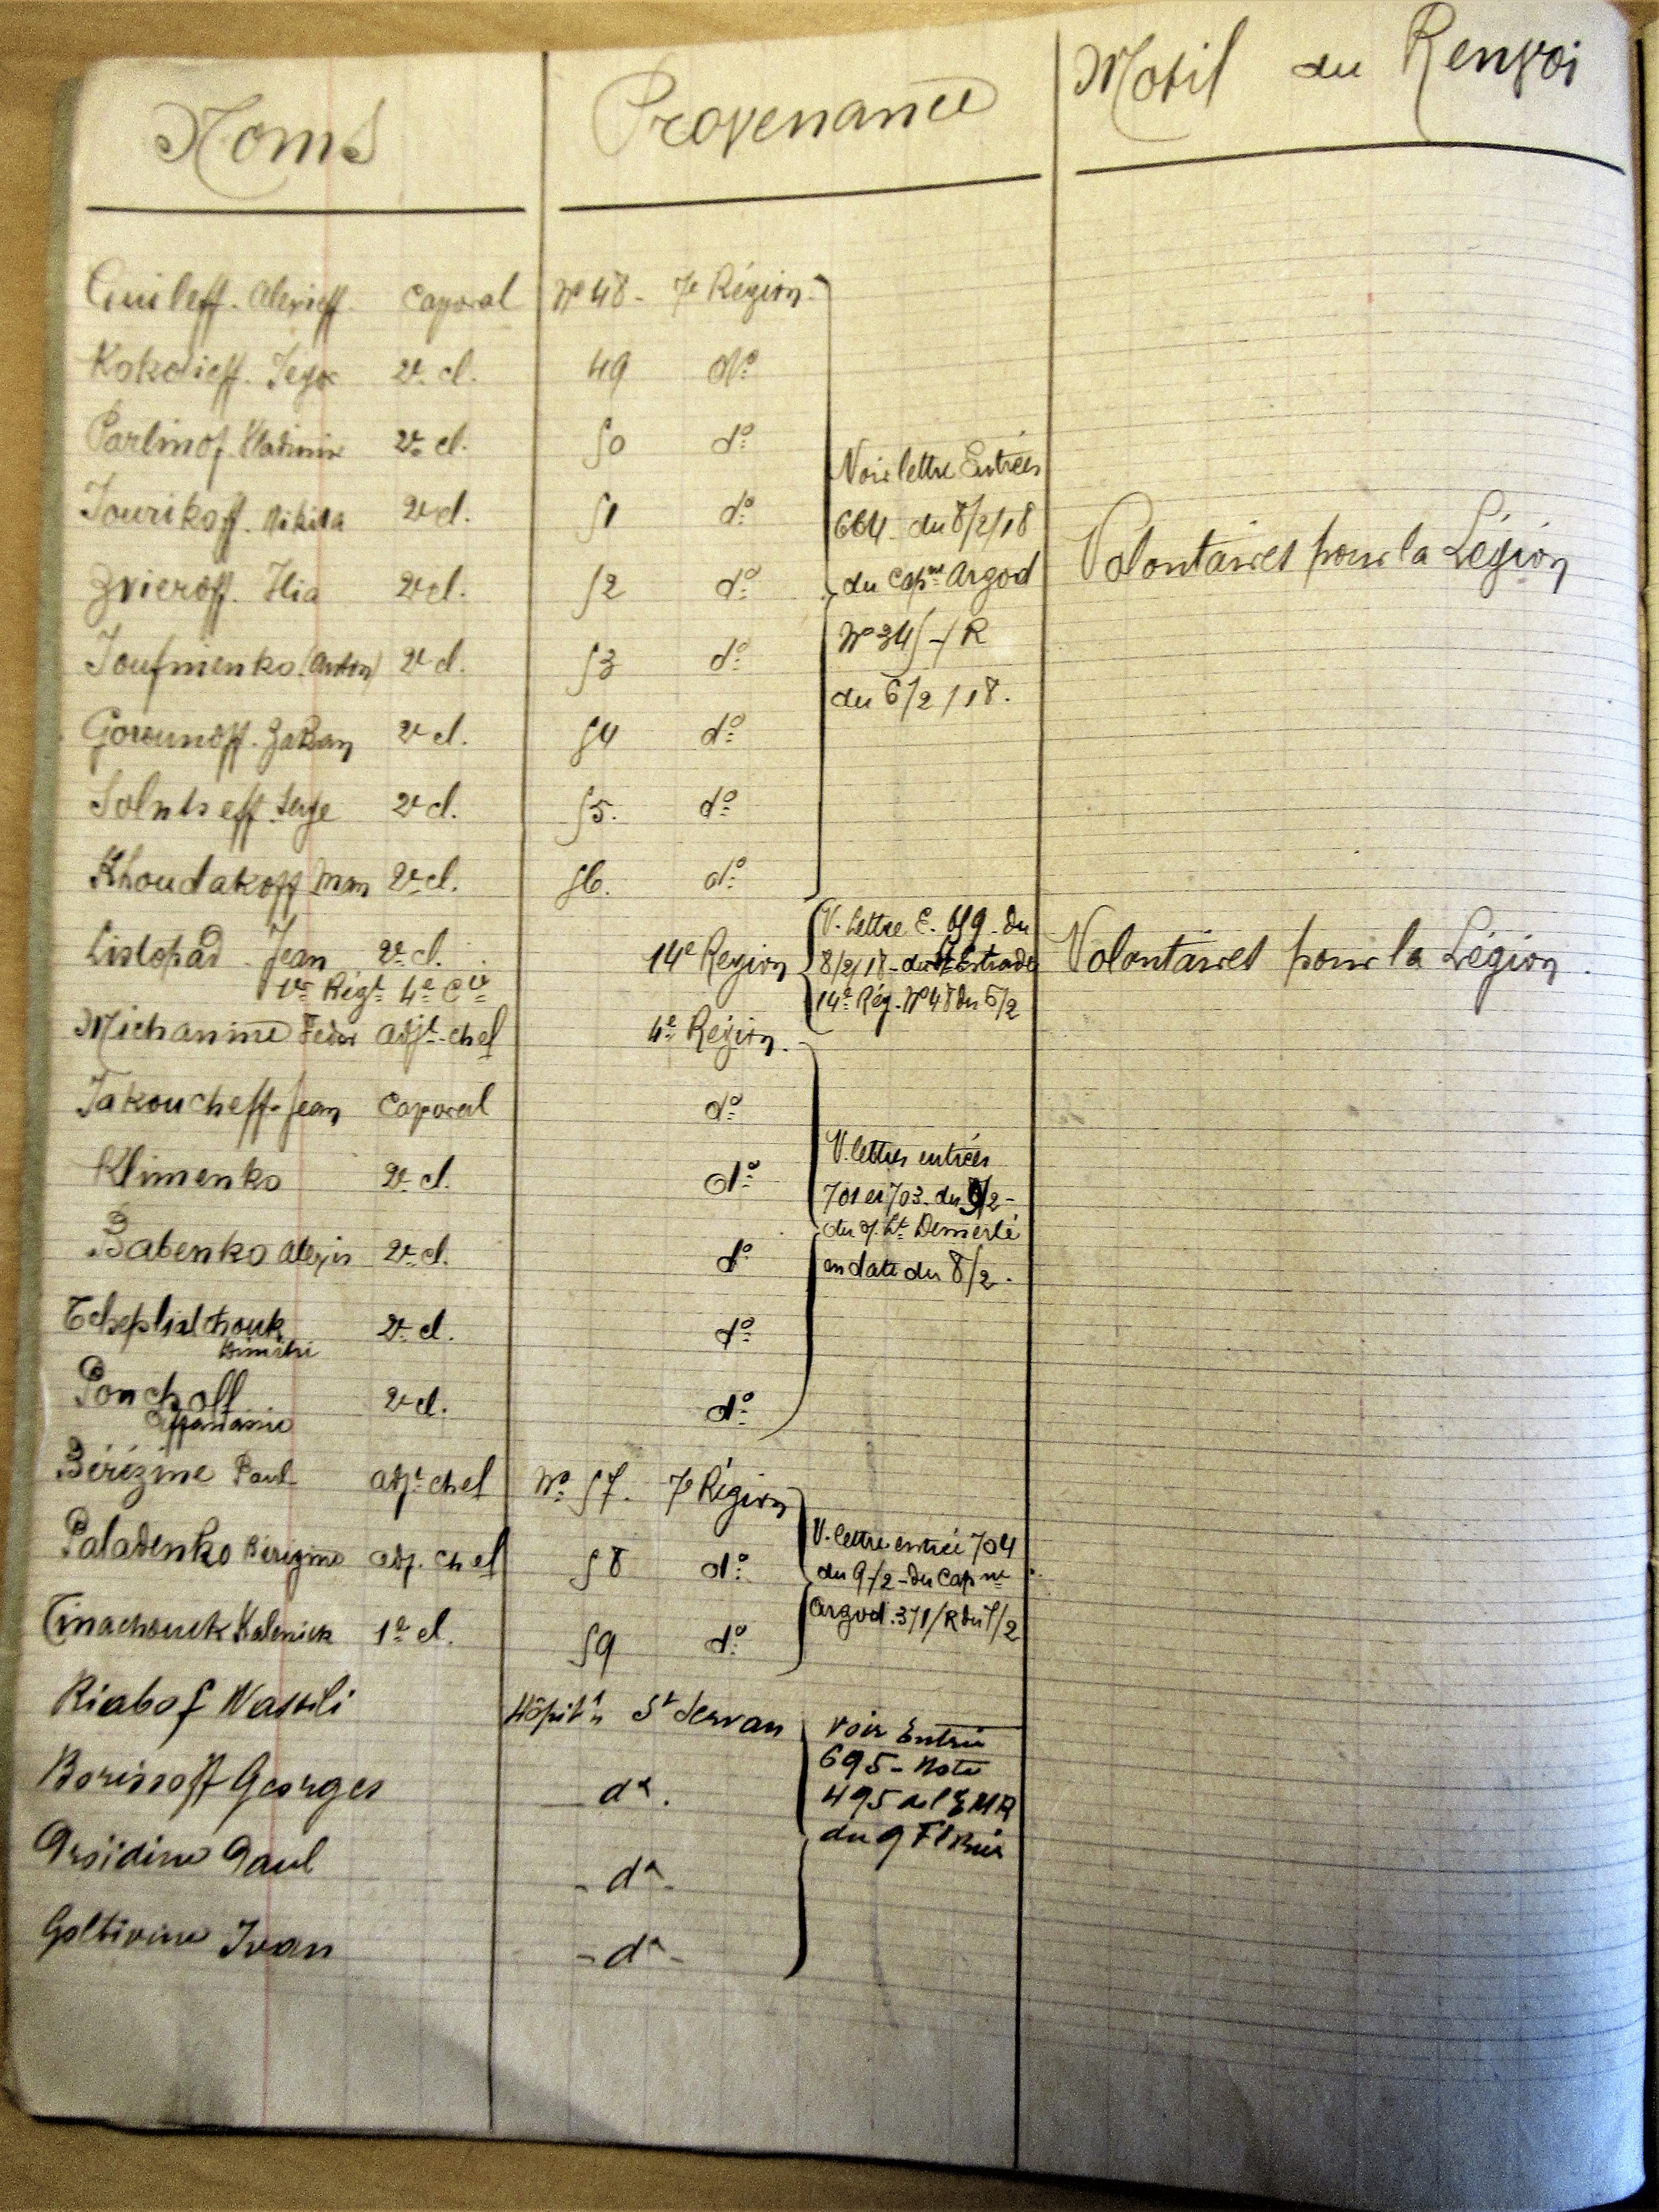 Noms Provenance Motif du Renvoi
Guileff. Alexieff. Caporal Nº 48 - 7e Région
Kokolieff. Jegor 2e cl. 49 dº
Parlinof Vladimir 2e cl. 50 dº
Voir lettre Entrées
Jourikoff. Nikita 2e cl. 51 dº
664 du 8/2/18
Volontaires pour la Légion
Zvieroff. Ilia 2e cl. 52 dº
du Capne Argod
Nº 345-/R
Joufmenko (Anton) 2e cl. 53 dº
du 6/2/18.
Gorounoff. 2e cl. 54 dº
Solntseff. Serge 2e cl. 55. dº
Khoudakoff 2e cl. 56. dº
V. Lettre E. 659 du
Listopad Jean 2e cl. 14e Région
8/2/18 - du Lt Estrade
Volontaires pour la Légion.
1er Régt 4e Cie
14e Rég. Nº 48 du 6/2
Michanine Fedor adjt-chef 4e Région.
Jakoucheff Jean Caporal dº
V. lettres entrées
Klimenko 2e cl. dº
701 et 703 du 9/2 -
du Lt
Babenko Alexis 2e cl. dº
en date du 8/2.
2e cl. dº
Dimitri
Ponchoff 2e cl. dº
Affanassie
Bérézine Paul adjt chef Nº 57. 7e Région
V. lettre entrée 704
Paladenko Bérézine adj. chef 58 dº
du 9/2 - du Capne
Argod. 371/R du /2
Tinachouck Kalenick 1e cl. 59 dº
Riabof Wassili Hôpital St Servan
voir Entrée
695 - Note
Borissoff Georges dº.
495 de l'EMR
du 9 Février
Paul - dº -
Goltivine Ivan - dº -